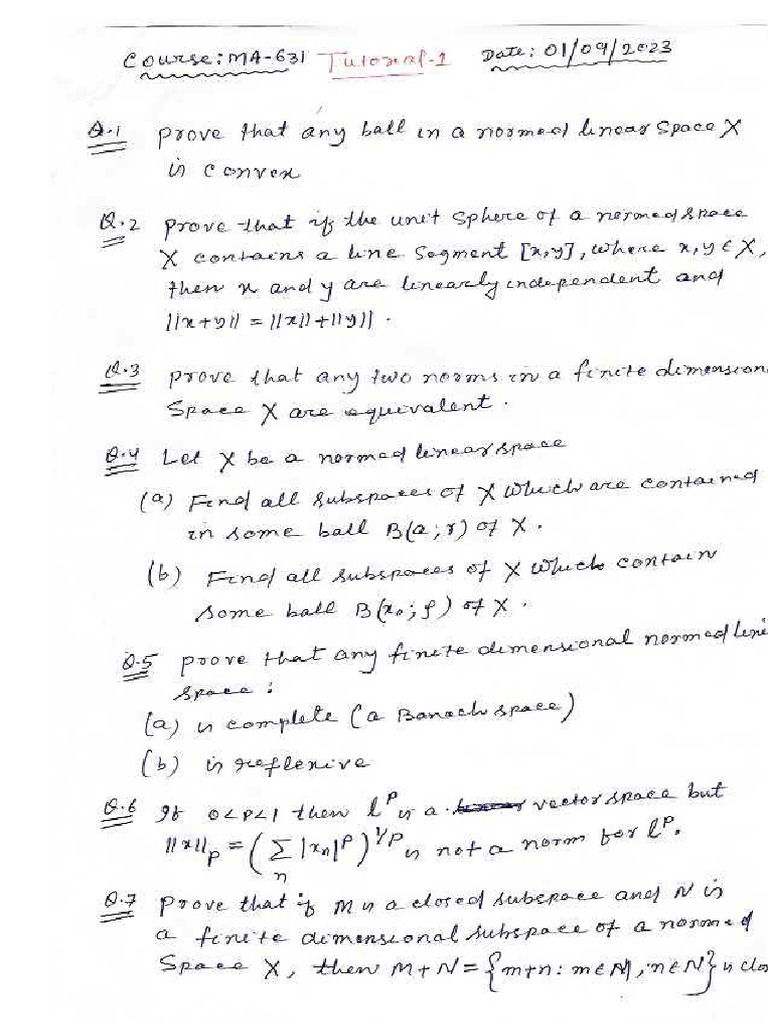 Course: MA-631 Tutorial-1 Date: 01/09/2023
Q.1 Prove that any ball in a normed linear space X
is convex
Q.2 Prove that if the unit sphere of a normed space
X contains a line segment [x,y], where x,y ∈ X,
then x and y are linearly independent and
||x+y|| = ||x||+||y||.
Q.3 Prove that any two norms in a finite dimension
Space X are equivalent.
Q.4 Let X be a normed linear space
(a) Find all subspaces of X which are contained
in some ball B(a;r) of X.
(b) Find all subspaces of X which contain
some ball B(x₀;ρ) of X.
Q.5 Prove that any finite dimensional normed line
space:
(a) is complete (a Banach space)
(b) is reflexive
Q.6 If 0<p<1 then l^p is a vector space but
||x||_p = (∑_n |x_n|^p)^{1/p} is not a norm for l^p.
Q.7 Prove that if M is a closed subspace and N is
a finite dimensional subspace of a normed
Space X, then M+N = {m+n: m∈M, n∈N} is clos